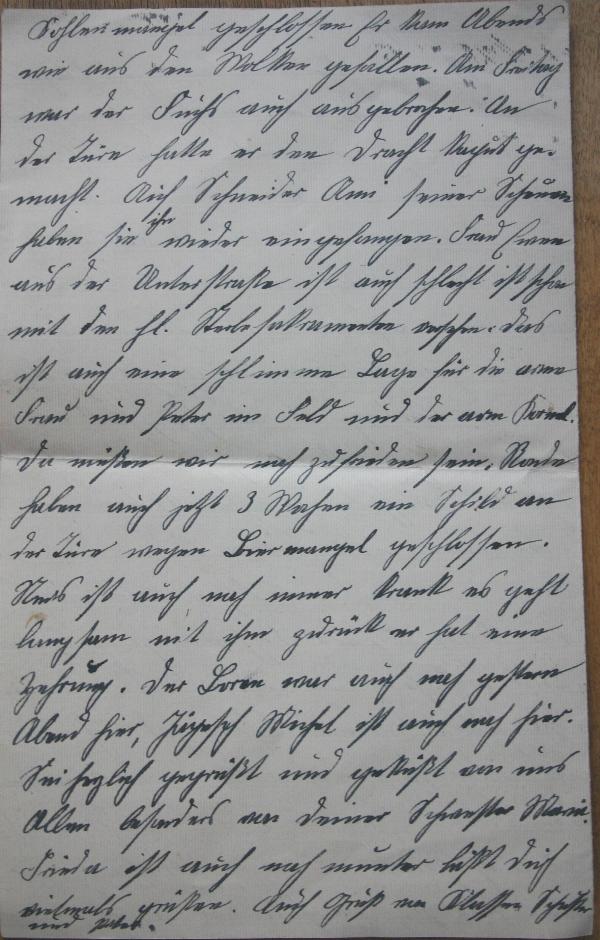 Kohlenmangel geschlossen Er kam Abends
wie aus den Wolken gefallen. Am Freitag
war der Fuchs auch ausgebrochen. An
der Türe hatte er den Dracht kaput ge-
macht. Auch Schneider seiner Scheune
haben sie ihn wieder eingefangen. Frau
aus der Unterstraße ist auch schlecht ist schon
mit den hl. Sterbesakramenten versehen. Das
ist auch eine schlimme Lage für die arme
Frau und Peter im Feld und der arm
Da müßen wir noch zufrieden sein.
haben auch jetzt 3 Wochen ein Schild an
der Türe wegen Biermangel geschlossen.
ist auch noch immer krank es geht
langsam mit ihm zurück er hat eine
Zehrung. Der war auch noch gestern
Abend hier, Michel ist auch noch hier.
Sei herzlich gegrüßt und geküßt von uns
Allen besonders von deiner Schwester Maria.
Frieda ist auch noch munter läßt dich
vielmals grüßen. Auch Gruß von
und